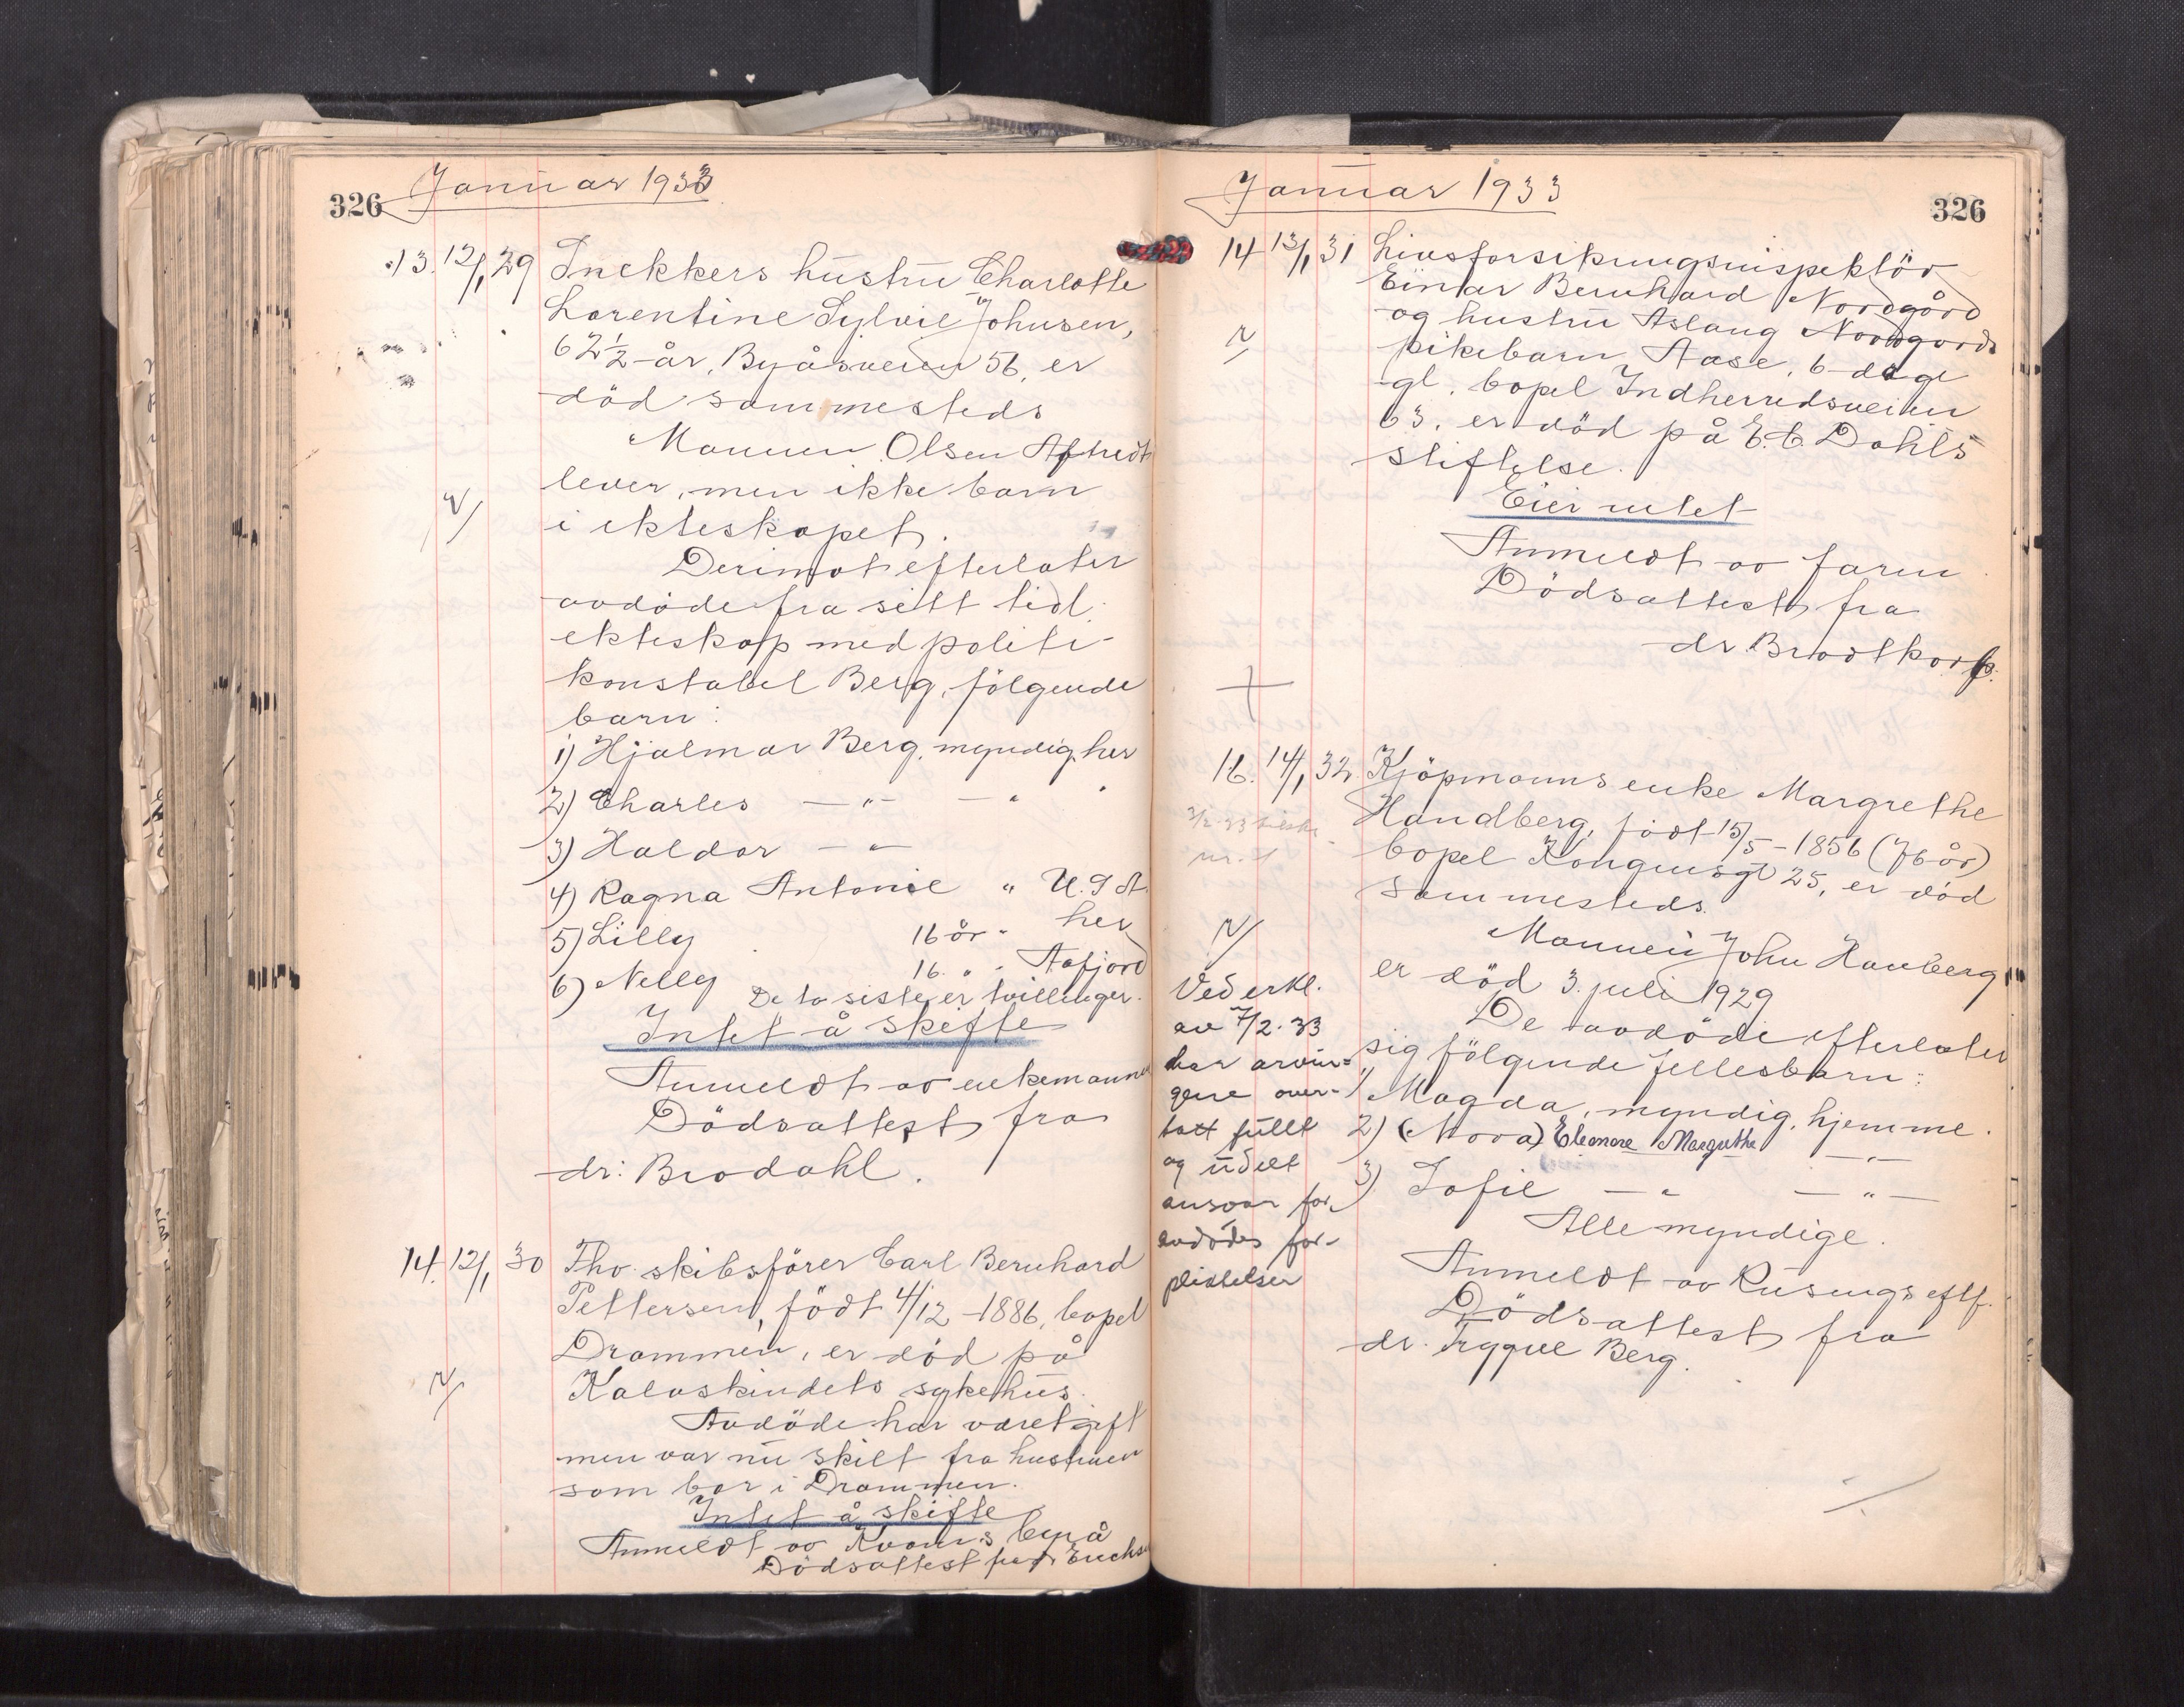 326 Januar 1933
13. 12/1 29 Snekkers hustru Charlotte
Lorentine Sylvie Johnsen,
62 1/2 år, Byåsveien 56, er
död sammesteds
Mannen Olsen
lever, men ikke barn
i ekteskapet.
Derimot efterlater
avdöde fra sitt tid.
ekteskap med politi-
konstabel Berg, fölgende
barn:
1) Hjalmar Berg, myndig, her
2) Charles —"— —"
3) Haldor —"—
4) Ragna Antonie " U.S.A.
5) Lilly 16 år " her
6) Nelly 16 " " Aafjord
De to siste er tvillinger.
Intet å skifte
Anmeldt av enkemannen
Dödsattest fra
dr. Brodahl.
14. 12/1 30 Fhv. skibsförer Carl Bernhard
Pettersen, födt 4/12-1886, bopel
Drammen, er död på
Kalvskindets sykehus.
Avdöde har været gift
men var nu skilt fra hustruen
som bor i Drammen.
Intet å skifte
Anmeldt av Kvams byrå
Dödsattest fra dr
Januar 1933 326
14 13/1 31 Livsforsikringsinspektör
Einar Bernhard Nordgård
og hustru Aslaug Nordgårds
pikebarn Aase, 6 dage
gl., bopel Indherredsveien
63, er död på E. C. Dahls
stiftelse.
Eier intet
Anmeldt av faren
Dödsattest fra
dr Brodtkorb.
16. 14/1 32 Kjöpmanns enke Margrethe
Handberg, födt 15/5-1856 (76 år)
bopel Kongensgt 25, er död
sammesteds.
Mannen John Hanberg
er död 3. juli 1929
De avdöde efterlater
sig fölgende fellesbarn:
1) Magda, myndig, hjemme.
2) (Nora) Eleonore Margrethe —"—
3) Sofie —"— —"—
Alle myndige.
Anmeldt av Rusungs eftf.
Dödsattest fra
dr. Trygve Berg.
Ved erkl.
av 7/2.33
har arvin-
gene over-
tatt fullt
og udelt
ansvar for
avdödes for-
pliktelser